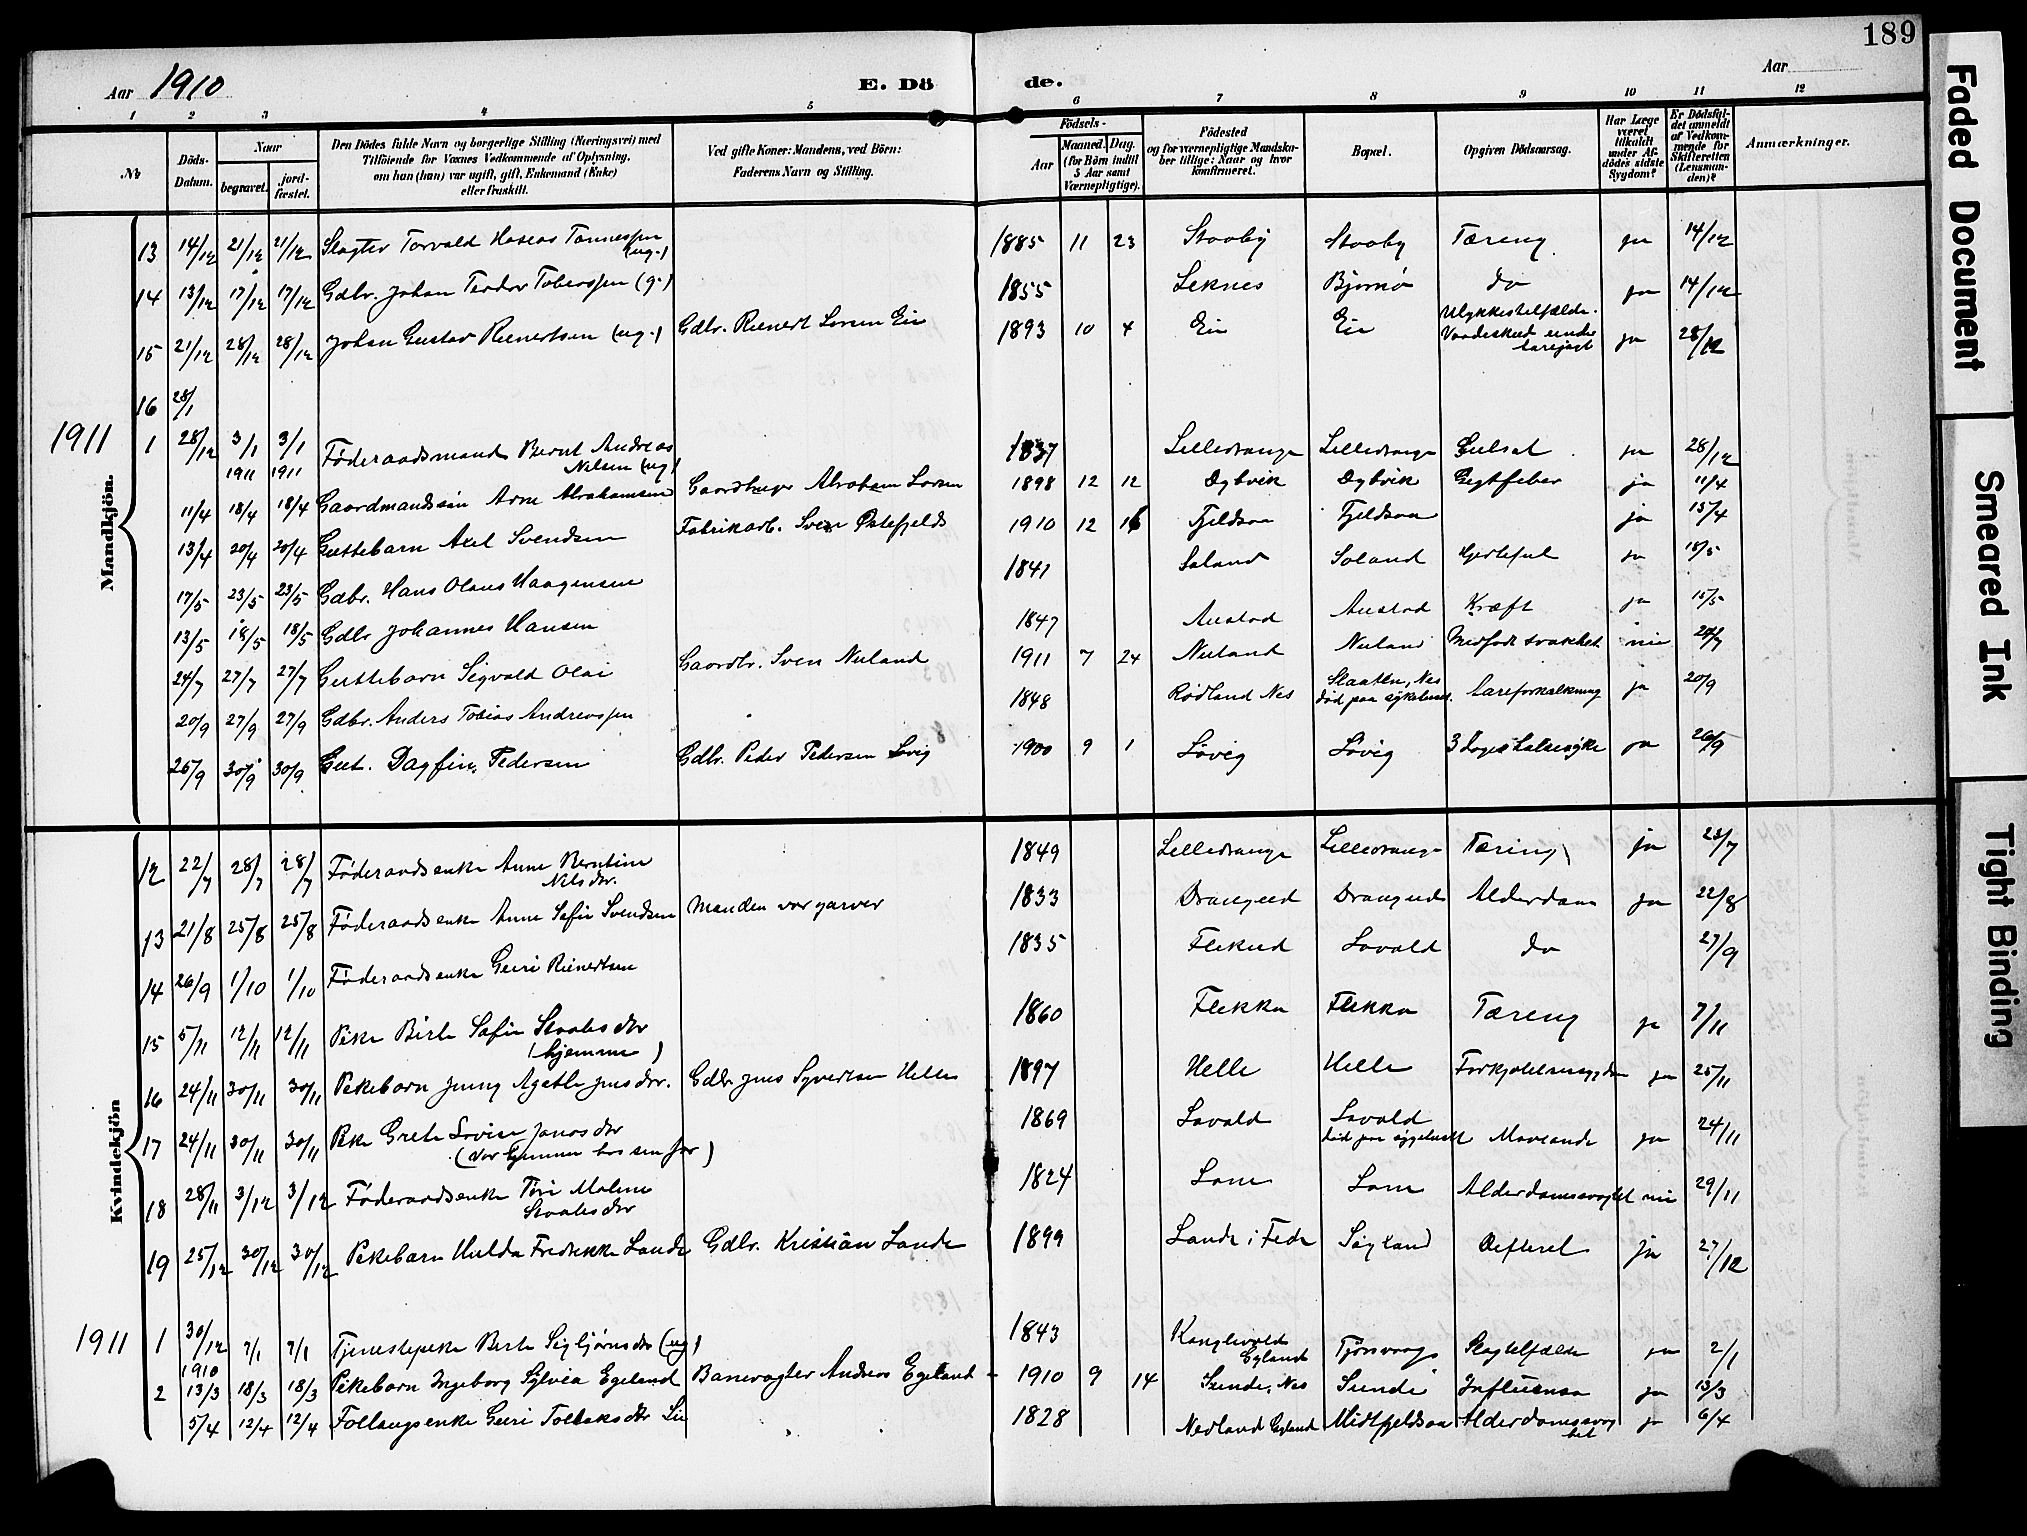 189
Aar 1910
E. Dö
de.
Aar
1 2 3 4 5 6 7 8 9 10 11 12
No
Döds-Datum.
Naar
begravet.
jord-fæstet.
Den Dödes fulde Navn og borgerlige Stilling (Næringsvei) med
Tilföiende for Voxnes Vedkommende af Oplysning.
om han (hun) var ugift, gift, Enkemand (Enke)
eller fraskilt.
Ved gifte Koner: Mandens, ved Börn:
Faderens Navn og Stilling.
Födsels-
Aar
Maaned. Dag.
(for Börn indtil
5 Aar samt
Værnepligtige).
Födested
og for værnepligtige Mandska-
ber tillige: Naar og hvor
konfirmeret.
Bopæl.
Opgiven Dödsaarsag.
Har Læge
været
tilkaldt
under Af-
dödes sidste
Sygdom?
Er Dödsfal-
det anmeldt
af Vedkom-
mende for
Skifteretten
(Lensman-
den)?
Anmærkninger.
Mandkjön.
13 14/12 21/12 21/12 Slagter Torvald Tønnessen (ug.) 1885 11 23 Stooby Stooby Tæring ja 14/12
14 13/12 17/12 17/12 Gdbr. Johan Teodor Tobiassen (g.) 1855 Leknes Bjørnø do ja 14/12
15 21/12 28/12 28/12 Johan Gustav Reinertsen (ug.) Gdbr. Reinert Larsen Eie 1893 10 4 Eie Eie Ulykkestilfælde. Vaadeskud under ja 28/12
16 28/1
1911
1 28/12 3/1 1911 3/1 1911 Føderaadsmand Bernt Andreas Nilsen (ug) 1837 Lilledrange Lilledrange Gulsot ja 28/12
11/4 18/4 18/4 Gaardmandssøn Arne Abrahamsen Gaardbruger Abraham Larsen 1898 12 12 Dybvik Dybvik Gigtfeber ja 11/4
13/4 20/4 20/4 Guttebarn Axel Svendsen Fabrikarb. Sven Østefjelds 1910 12 16 Fjeldsaa Fjeldsaa ja 15/4
17/5 23/5 23/5 Gdbr. Hans Olaus Haagensen 1841 Soland Soland Hjertefeil ja 18/5
13/5 18/5 18/5 Gdbr Johannes Hansen 1847 Austad Austad Kræft ja 15/5
24/7 27/7 27/7 Guttebarn Sigvald Olai Gaardbr. Sven Nuland 1911 7 24 Nuland Nuland Medfødt svakhet nei 24/7
20/9 27/9 27/9 Gdbr. Anders Tobias Andreassen 1848 Rødland Nes Slaatten, Nes død paa sykehuset. Aareforkalkning ja 20/9
25/9 30/9 30/9 Gut. Dagfin Pedersen Gdbr. Peder Pedersen Løvig 1900 9 1 Løvig Løvig 3 Dages Halsesyke ja 26/9
Kvindekjön
12 22/7 28/7 28/7 Føderaadsenke Anne Berntine Nilsdtr. 1849 Lilledrange Lilledrange Tæring ja 23/7
13 21/8 25/8 25/8 Føderaadsenke Anne Sofie Svendsen Manden var garver 1833 Drangeid Drangeid Alderdom ja 22/8
14 26/9 1/10 1/10 Føderaadsenke Guri Reinertsen 1835 Flikeid Lavold do 27/9
15 5/11 12/11 12/11 Pike Birte Sofie Staalesdtr (hjemme) 1860 Flikka Flikka Tæring ja 7/11
16 24/11 30/11 30/11 Pikebarn Jenny Agethe Jensdtr. Gdbr Jens Syvertsen Helle 1897 Helle Helle Forkjølelsessygdom ja 25/11
17 24/11 30/11 30/11 Pike Grete Lovise Jonasdtr (var hjemme hos sin far) 1869 Lavold Lavold død paa sygehuset Mavesaade ja 24/11
18 28/11 3/12 3/12 Føderaadsenke Tøri Malene Staalesdtr 1824 Lom Lom Alderdomssvaghet nei 29/11
19 25/12 30/12 30/12 Pikebarn Hulda Fredrikke Lande Gdbr. Kristian Lande 1899 Lande i Feda Sigland Difterit ja 27/12
1911
1 30/12 1910 7/1 7/1 Tjenestepike Berte Sigbjørnsdtr (ug) 1843 Konglevold Egland Tjørsvaag Slagtilfælde ja 2/1
2 13/3 18/3 18/3 Pikebarn Ingeborg Sylvia Egeland Banevogter Andreas Egeland 1910 9 14 Sunde, Nes Sunde Influensa ja 13/3
5/4 12/4 12/4 Follaugsenke Guri Tollaksdtr Lie 1828 Nedland Egland Midtfjeldsaa Alderdomssvaghet ja 6/4
Faded Document
Smeared Ink
Tight Binding